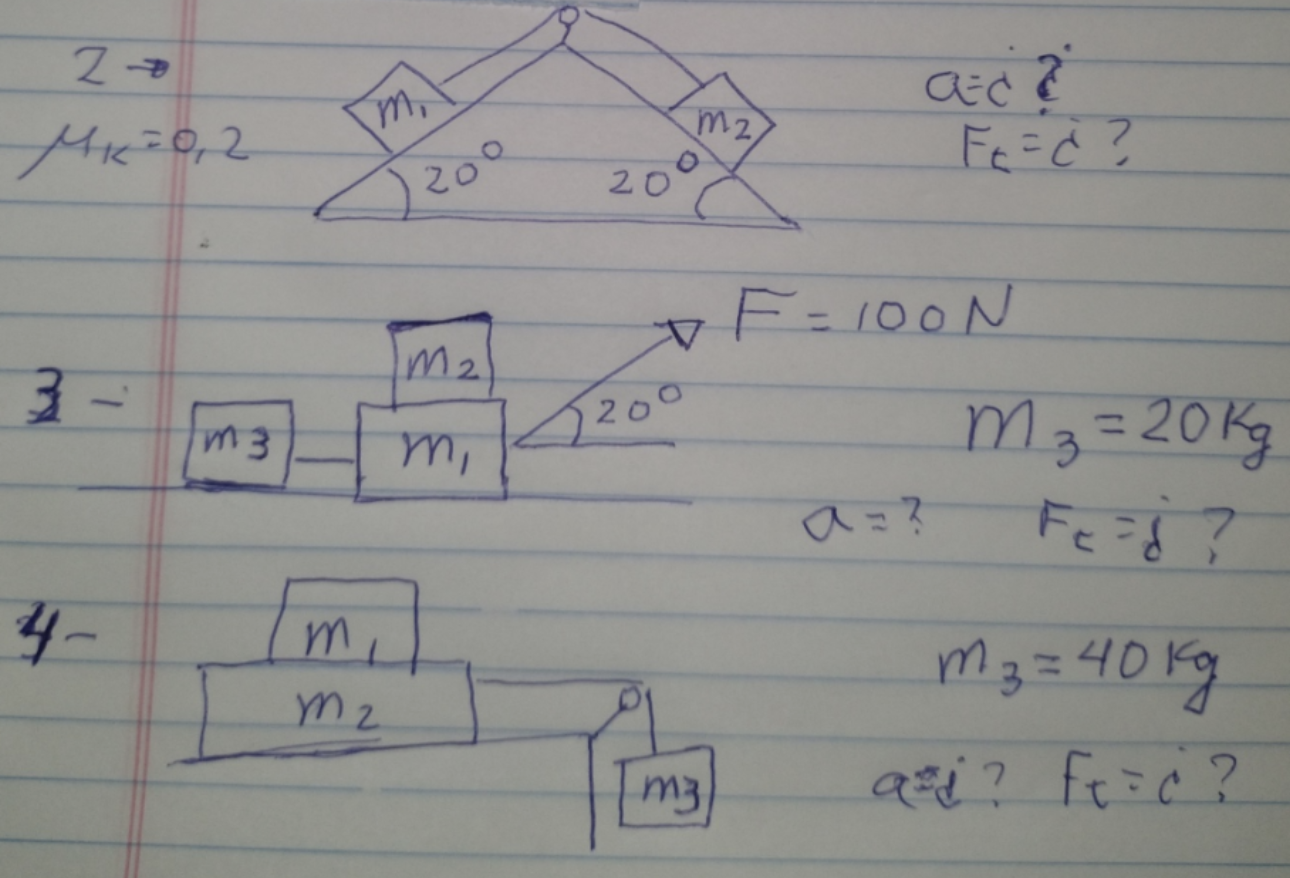 2→
μK=0,2
m1
m2
20°
20°
a=¿?
Ft=¿?
3-
m3
m2
m1
20°
F=100N
m3=20Kg
a=?
Ft=¿?
4-
m1
m2
m3
m3=40Kg
a=¿?
Ft=¿?